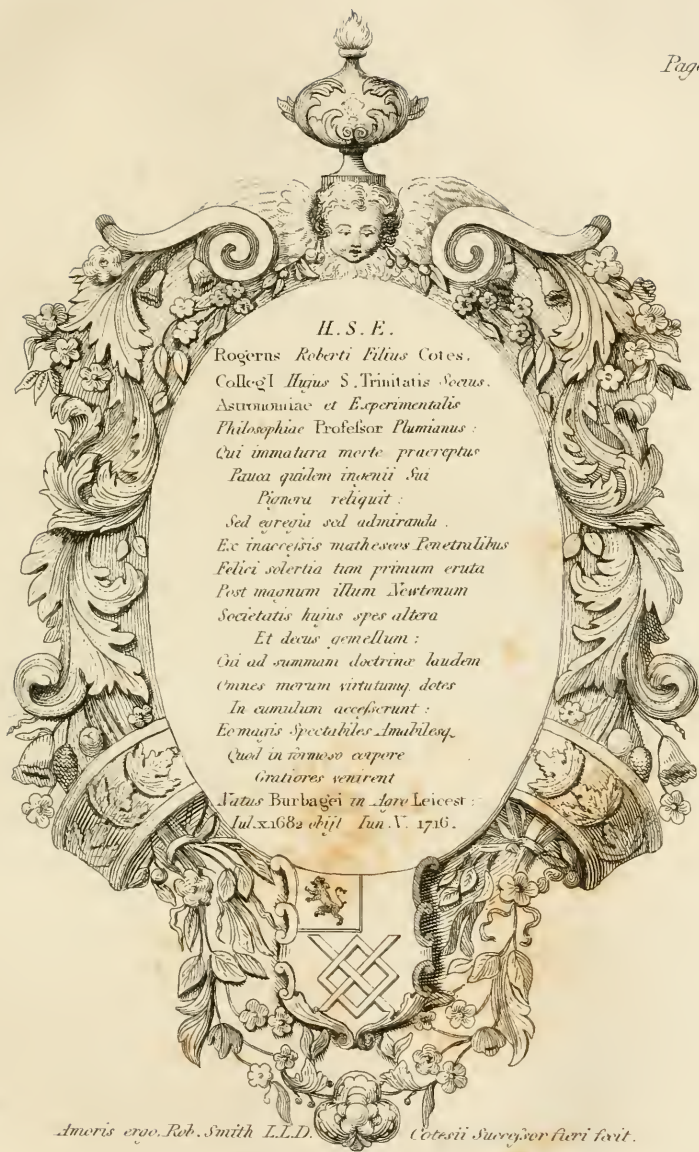 Page
H. S. E.
Rogerus Roberti Filius Cotes.
CollegI Hujus S. Trinitatis Socius.
Astronomiae et Experimentalis
Philosophiae Profeſsor Plumianus :
Qui immatura morte praereptus
Pauca quidem ingenii Sui
Pignora reliquit :
Sed egregia sed admiranda .
Ex inacceſsis matheseos Penetralibus
Felici solertia tum primum eruta
Post magnum illum Newtonum
Societatis hujus spes altera
Et decus gemellum :
Cui ad summam doctrinæ laudem
Omnes morum virtutumq. dotes
In cumulum acceſserunt :
Eo magis Spectabiles Amabilesq.
Quod in formoso corpore
Gratiores venirent
Natus Burbagei in Agro Leicest :
Iul. x. 1682 obijt Iun. V. 1716.
Amoris ergo. Rob. Smith L.L.D. Cotesii Succeſsor fieri fecit.